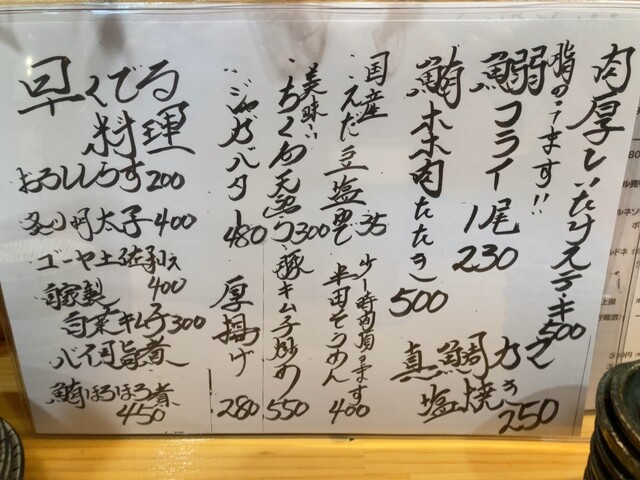 肉厚しいたけステーキ500
脂のってます!!
鰯フライ1尾230
鮪ホホ肉たたき500
真鯛カマ塩焼き250
国産えだ豆塩ゆで35
少々時間頂きます
半田そうめん400
美味い
ちくわ天ぷら300
豚キムチ炒め550
ジャガバター480
厚揚げ280
早くでる料理
おろししらす200
炙り明太子400
ゴーヤ土佐和え400
自家製白菜キムチ300
鮪ほろほろ煮450